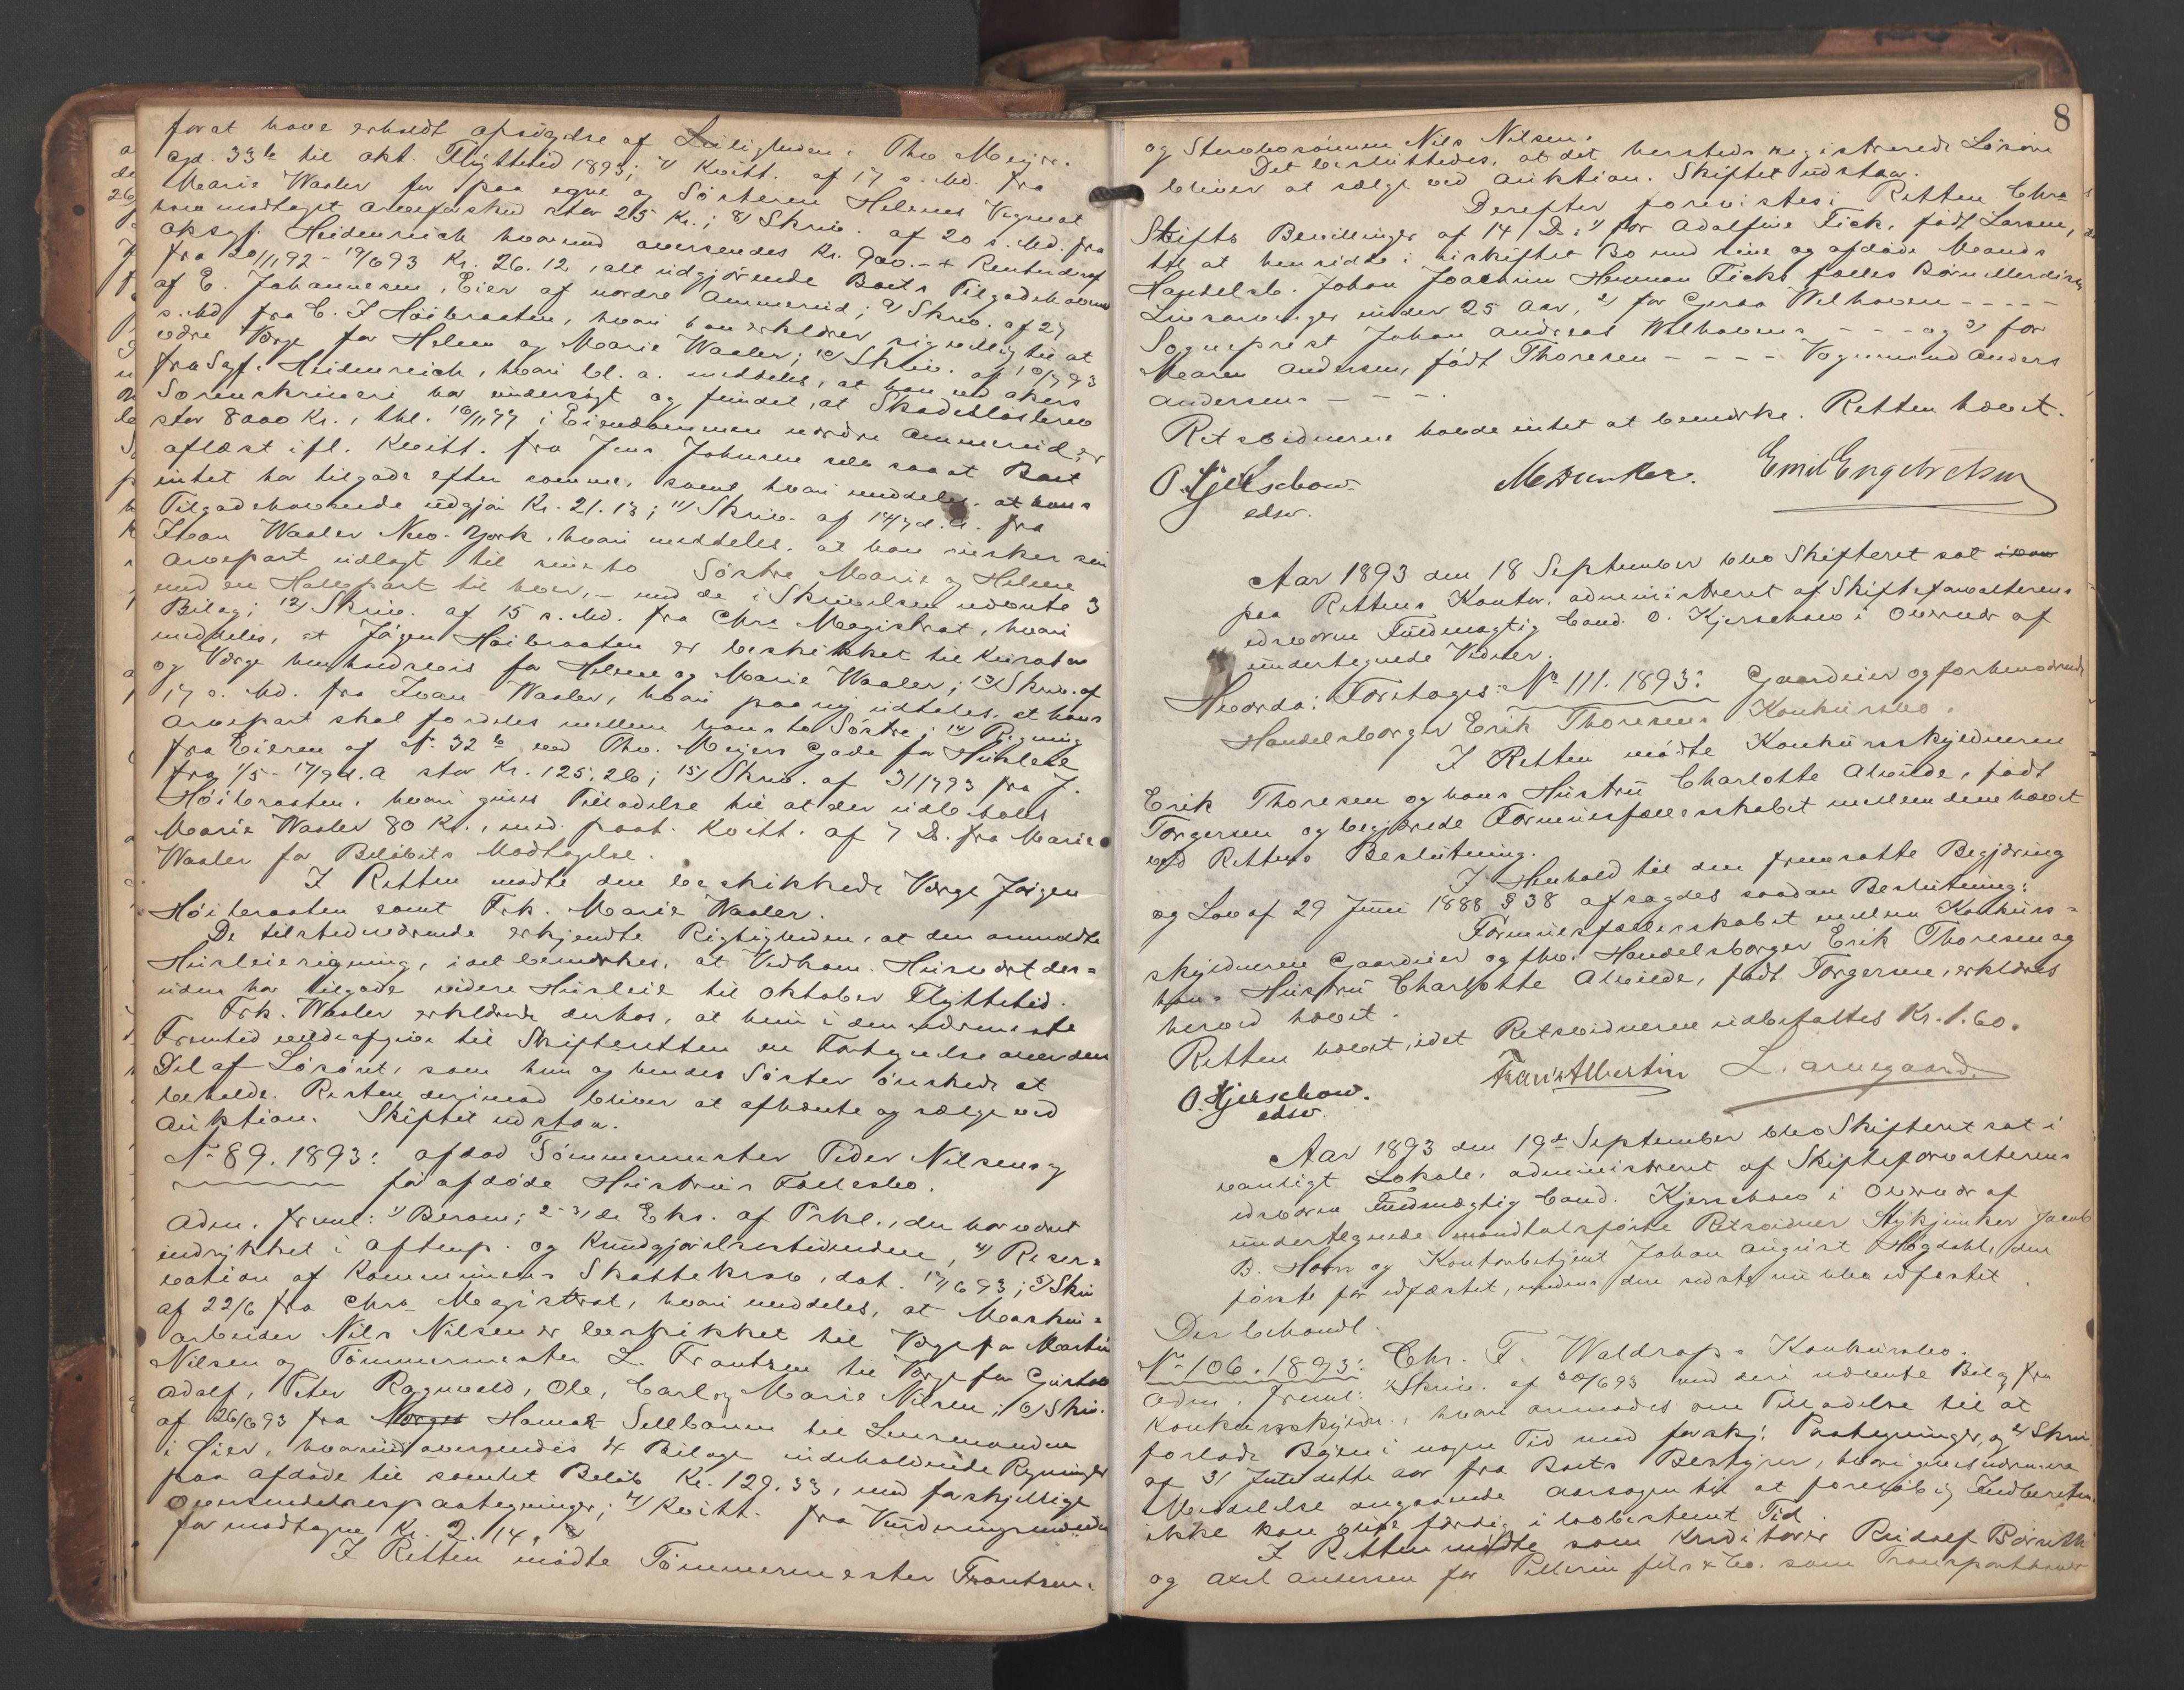 for at have erholdt opsigelse af Leiligheden i Thv. Meyers
gd. 33 b til okt. Flyttetid 1893; 7) Kvitt. af 17 s. Md. fra
Marie Waaler for paa egne og Søsteren Helenes Vegne at
have modtaget Arveforskud stor 25 Kr.; 8) Skriv. af 20 s. Md. fra
Ossgf. Heidenreich hvormed oversendes Kr. 900.- + Renter deraf
fra 20/11 92 - 19/6 93 Kr. 26.12, alt udgjørende Boets Tilgodehavende
af E. Johannesen, Eier af nordre Ammerud; 9) Skriv. af 27
s. Md. fra C. J. Høibraaten, hvori han erklærer sig villig til at
være Værge for Helene og Marie Waaler; 10) Skriv. af 10/7 93
fra Sgf. Heidenreich, hvori bl. a. meddeles, at han ved Akers
Sorenskriveri har undersøgt og fundet, at Skadesløsbrev
stor 8000 Kr., thl. i Eiendommen nordre Ammerud er
aflæst ifl. Kvitt. fra Jens Johnsen selv saa at Boet
intet har tilgode efter samme, samt hvori meddeles, at hans
Tilgodehavende udgjør Kr. 21.13; 11) Skriv. af 14/7 d. A. fra
Ivan Waaler New-York, hvori meddeles, at han ønsker sin
Arvepart udlagt til sine to Søstre Marie og Helene
med en Halvpart til hver, - med de i Skrivelsen nævnte 3
Bilag; 12) Skriv. af 15 s. Md. fra Chra Magistrat, hvori
meddeles, at Jørgen Høibraaten er beskikket til Kurator
og Værge henholdsvis for Helene og Marie Waaler; 13) Skriv. af
17 s. Md. fra Ivan Waaler, hvori paany udtales, at hans
Arvepart skal fordeles mellem hans to Søstre; 14) Regning
fra Eieren af No 32 b ved Thv. Meyers Gade for Husleie
fra 1/5 - 17/9 d. A. stor Kr. 125.26; 15) Skriv. af 31/7 93 fra J.
Høibraaten, hvori gives Tilladelse til at der udbetales
Marie Waaler 80 Kr., med paat. Kvitt. af 7 D. fra Marie
Waaler for Beløbets Modtagelse.
I Retten mødte den beskikkede Værge Jørgen
Høibraaten samt Frk. Marie Waaler.
De tilstedeværende erkjendte Rigtigheden, at den anmeldte
Husleieregning, idet bemærkes, at Vedkom. Husvært des-
uden har tilgode videre Husleie til Oktober Flyttetid.
Frk. Waaler erklærede derhos, at hun i den nærmeste
Fremtid vilde afgive til Skifteretten en Fortegnelse over den
Del af Løsøret, som hun og hendes Søster ønskede at
beholde. Resten derimod bliver at afhænte og sælge ved
Auktion. Skiftet udstaar.
No 89. 1893: Afdød Tømmermester Peder Nilsens og
før afdøde Hustrus Fællesbo.
Adm. freml: 1) Beram; 2-3) de Eks. af Prkl., der har været
indrykket i Aftenp. og Kundgjørelsestidenden, 4) Reser-
vation af Kommunens Skattekrav, dat. 17/6 93; 5) Skri
af 22/6 fra Chra Magistrat, hvori meddeles, at Maskin-
arbeider Nils Nilsen er beskikket til Værge for Martin
Nilsen og Tømmermester L. Frantzen til Værge for Gustav
Adolf, Peter Ragnvald, Ole, Carl og Marie Nilsen; 6) Skri.
af 26/6 93 fra Norges Hamar Sellbaum til Lensmanden
i Øier, hvormed oversendes 4 Bilage indeholdende Regninger
paa Afdøde til samlet Beløb Kr. 129.33, med forskjellige
Oversendelsespaategninger; 7) Kvitt. fra Vurderingsmænden
for modtagne Kr. 2.14.
I Retten mødte Tømmermester Frantzen
8
og Stervbosønnen Nils Nilsen.
Det besluttedes, at det hersteds registrerede Løsøre
bliver at sælge ved Auktion. Skiftet udstaar.
Derefter forevistes i Retten Chra
Stifts Bevillinger af 14 D.: 1) for Adolfine Fick, født Larsen,
til at hensidde i uskiftet Bo med sine og afdøde Mands
Handelsb. Johan Joachim Herman Ficks fælles Børn eller disses
Livsarvinger under 25 Aar, 2) for Gerda Welhaven - - - - -
Sogneprest Johan Andreas Welhavens - - - og 3) for
Maren Andersen, født Thoresen - - - - Vognmand Anders
Andersens - - - .
Retsvidnerne havde intet at bemærke. Retten hævet.
O. Kjerschow
edsv.
M Dunker. Emil Engebretsen
Aar 1893 den 18 September blev Skifteret sat
paa Rettens Kontor, administreret af Skifteforvalterens
edsvorne Fuldmægtig Cand. O. Kjerschow i Overvær af
undertegnede Vidner.
Hvorda: Foretages: No 111. 1893: Gaardeier og forhenværende
Handelsborger Erik Thoresens Konkursbo.
I Retten mødte Konkursskyldneren
Erik Thoresen og hans Hustru Charlotte Alvilde, født
Torgersen og begjærede Formuesfællesskabet mellem dem hævet
ved Rettens Beslutning.
I Henhold til den fremsatte Begjæring
og Lov af 29 Juni 1888 § 38 afsagdes saadan Beslutning:
Formuesfællesskabet mellem Konkurs-
skyldneren Gaardeier og fhv. Handelsborger Erik Thoresen og
hans Hustru Charlotte Alvilde, født Torgersen, erklæres
herved hævet.
Retten hævet, idet Retsvidnerne udbetaltes Kr. 1.60.
O. Kjerschow.
edsv.
Frantz Albertin L. Arnegaard.
Aar 1893 den 19de September blev Skifteret sat i
vanligt Lokale, administreret af Skifteforvalterens
edsvorne Fuldmægtig Cand. Kjerschow i Overvær af
undertegnede mandtalsførte Retsvidner Stykjunker Jacob
B. Horn og Kontorbetjent Johan August Høgdahl, den
første før edfæstet, medens den sidste nu blev edfæstet.
Der behandl.
No 106. 1893: Chr. F. Waldrops Konkursbo.
Adm. freml: 1) Skriv. af 30/6 93 med deri nævnte Bilag fra
Konkursskyldn., hvori anmodes om Tilladelse til at
forlade Byen i nogen Tid med forskj. Paategninger, og 2) Skriv.
af 31 Juli dette Aar fra Boets Bestyrer, hvori gives nærmere
Meddelelse angaaende Aarsagen til at foreløbig Indberetn.
ikke kan blive færdig i lovbestemt Tid.
I Retten mødte som Kreditorer Rudolf
og Axel Andersen for Pellerin fils & Co. som Transporthaver